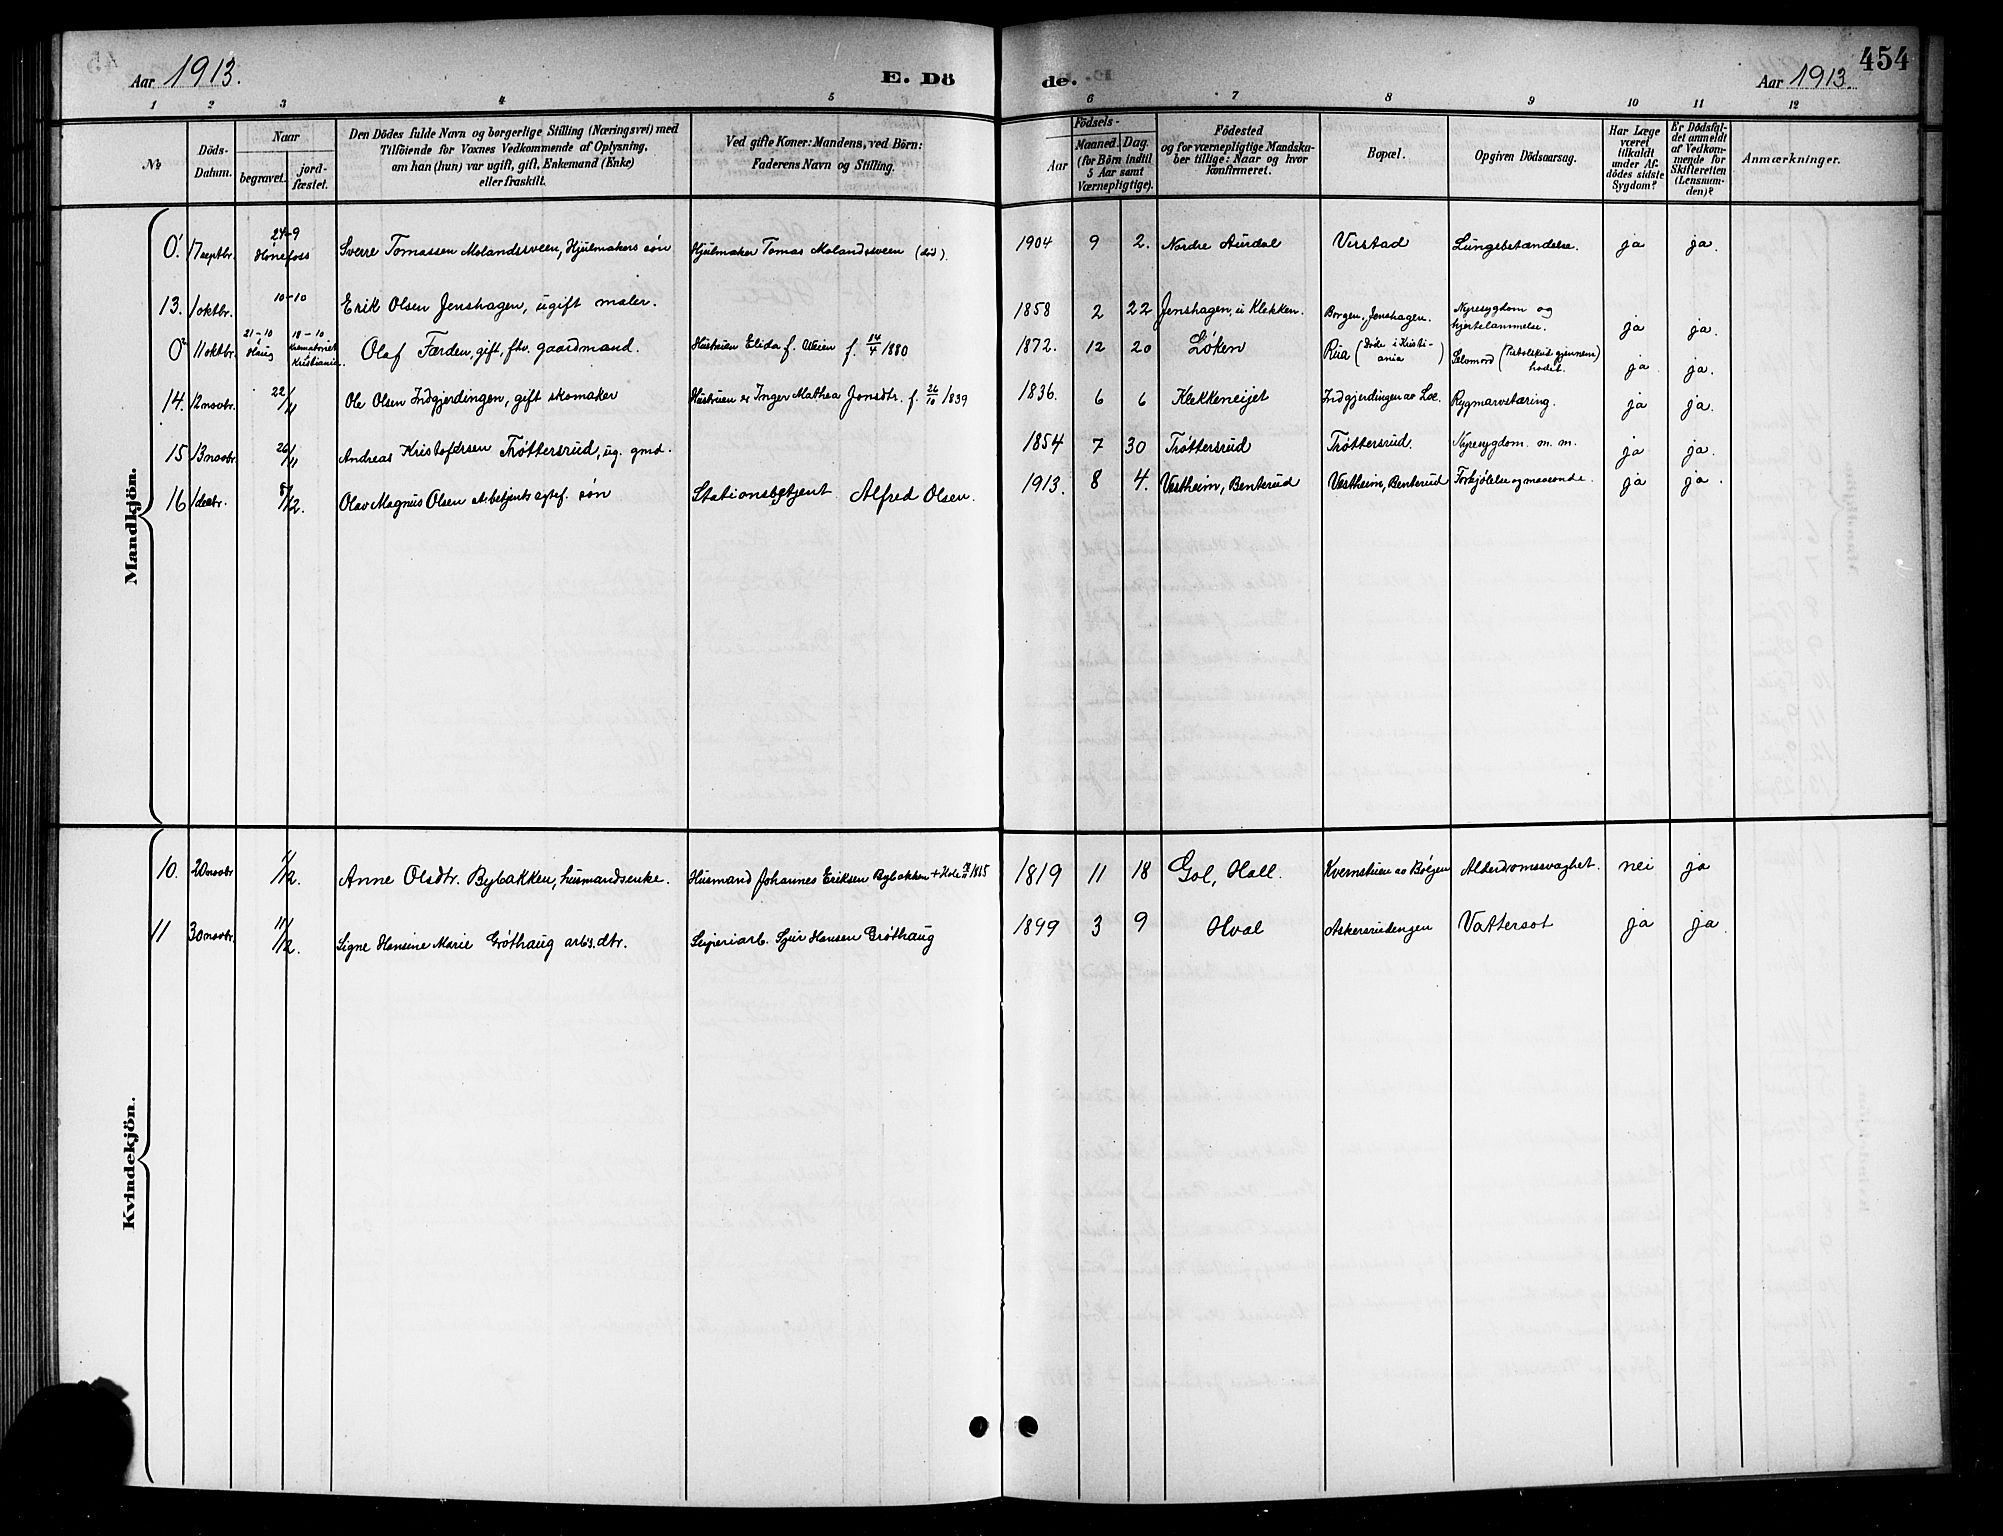 Aar 1913.
E. Dö
de.
Aar 1913.
454
1 2 3 4 5 6 7 8 9 10 11 12
№
Döds-Datum.
Naar
begravet.
jord-fæstet.
Den Dödes fulde Navn og borgerlige Stilling (Næringsvei) med
Tilföiende for Voxnes Vedkommende af Oplysning,
om han (hun) var ugift, gift, Enkemand (Enke)
eller fraskilt.
Ved gifte Koner: Mandens, ved Börn:
Faderens Navn og Stilling.
Födsels-
Aar
Maaned. Dag.
(for Börn indtil
5 Aar samt
Værnepligtige).
Födested
og for værnepligtige Mandska-
ber tillige: Naar og hvor
konfirmeret.
Bopæl.
Opgiven Dödsaarsag.
Har Læge
været
tilkaldt
under Af-
dödes sidste
Sygdom?
Er Dödsfal-
det anmeldt
af Vedkom-
mende for
Skifteretten
(Lensman-
den)?
Anmærkninger.
Mandkjön.
0¹. 17 septbr. 24-9 Hönefoss Sverre Tomassen Molandsveen, Hjulmakers sön Hjulmaker Tomas Molandsveen (död). 1904 9 2. Nordre Aurdal Virstad Lungebetændelse. ja ja.
13. 1 oktbr. 10-10 Erik Olsen Jenshagen, ugift maler. 1858 2 22 Jenshagen, u Klekken. Borgen, Jenshagen. Nyresygdom og hjertelammelse. ja ja.
0² 11 oktbr. 21-10 Haug 18-10 Krematoriet Kristiania. Olaf Færden, gift, fhv. gaardmand. Hustruen Elida f. Veien f. 14/4 1880 1872. 12 20 Løken Riia (Döde i Kristiania) Selvmord (Pistolskud gjennem hodet. ja ja.
14. 12 novbr. 22/11 Ole Olsen Indgjerdingen, gift skomaker Hustruen er Inger Mathea Jonsdtr. f. 26/10 1839 1836. 6 6 Klekkeneijet Indgjerdingen av Loe. Rygmarvstæring. ja ja.
15 13 novbr. 26/11 Andreas Kristofersen Trøttersrud, ug. gmd. 1854 7 30 Trøttersrud Trøttersrud. Nyresygdom. m. m. ja ja.
16 1 decbr. 8/12. Olav Magnus Olsen st.betjents egtef. sön Stationsbetjent Alfred Olsen. 1913. 8 4. Vestheim, Benterud Vestheim, Benterud Forkjölelse og maveonde. ja ja.
Kvindekjön.
10. 20 novbr. 1/12. Anne Olsdtr. Bybakken, husmandsenke. Husmand Johannes Eriksen Bybakken + Hole 1885 1819 11 18 Gol, Hall. Kvernstuen av Bölgen Alderdomssvaghet. nei ja
11 30 novbr. 11/12. Signe Hansine Marie Grøthaug arb's. dtr. Sliperiarb. Sjur Hansen Grøthaug 1899 3 9 Hval Askersrudengen Vattersot ja ja.